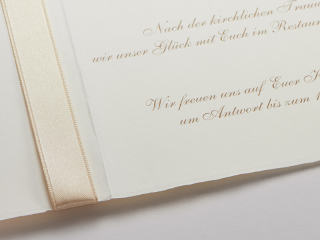 Nach der kirchlichen
wir unser Glück mit Euch im
Wir freuen uns auf Euer
um Antwort bis zum